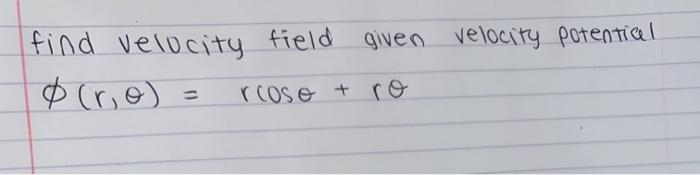 find velocity field given velocity potential
φ(r,θ) = rcosθ + rθ